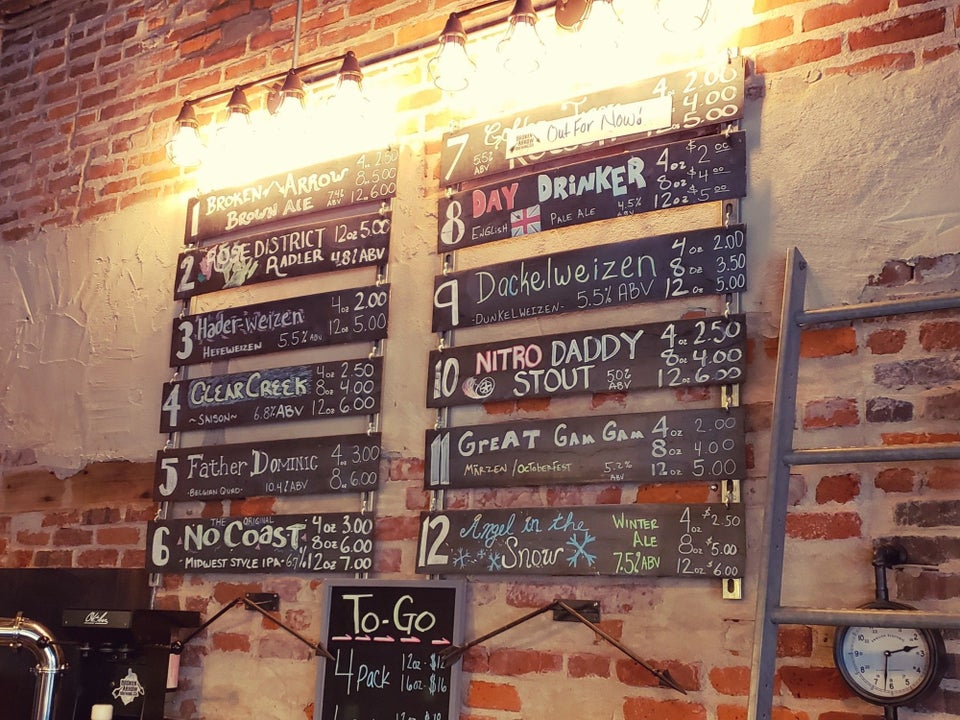 1 BROKEN ARROW 4oz 2.50
BROWN ALE 7.4% ABV 8oz 5.00
12oz 6.00
2 ROSE DISTRICT 12oz 5.00
RADLER 4.8% ABV
3 Hader-Weizen 4oz 2.00
HEFEWEIZEN 5.5% ABV 12oz 5.00
4 CLEAR CREEK 4oz 2.50
8oz 4.00
~SAISON~ 6.8% ABV 12oz 6.00
5 Father Dominic 4oz 3.00
-BELGIAN QUAD- 10.4% ABV 8oz 6.00
6 THE ORIGINAL 4oz 3.00
NO COAST 8oz 6.00
MIDWEST STYLE IPA 12oz 7.00
7 2.00
Out For Now! 4.00
5.5% ABV 5.00
8 DAY DRINKER 4oz $2.00
8oz $4.00
ENGLISH PALE ALE 4.5% ABV 12oz $5.00
9 Dackelweizen 4oz 2.00
8oz 3.50
-DUNKELWEIZEN- 5.5% ABV 12oz 5.00
10 NITRO DADDY 4oz 2.50
STOUT 8oz 4.00
5.0% ABV 12oz 6.00
11 GREAT GAM GAM 4oz 2.00
8oz 4.00
MÄRZEN/OCTOBERFEST 5.2% ABV 12oz 5.00
12 Angel in the Snow 4oz $2.50
WINTER ALE 8oz $5.00
7.5% ABV 12oz $6.00
To-Go
4 Pack 12oz - $12
16oz - $16